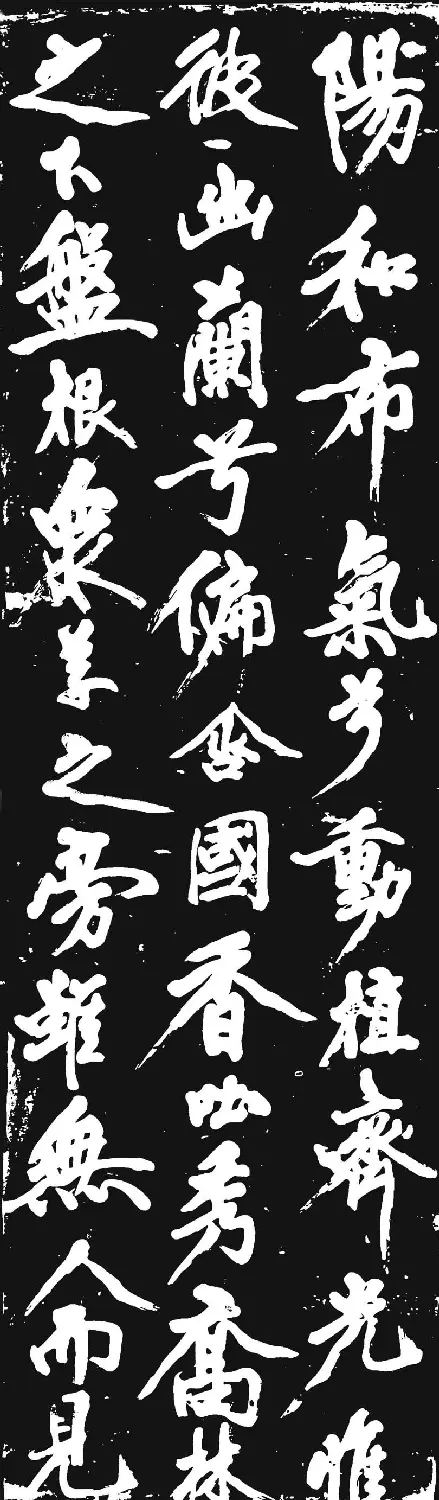 陽和布氣兮動植齊光惟
彼幽蘭兮偏含國香吐秀喬林
之下盤根衆草之旁雖無人而見